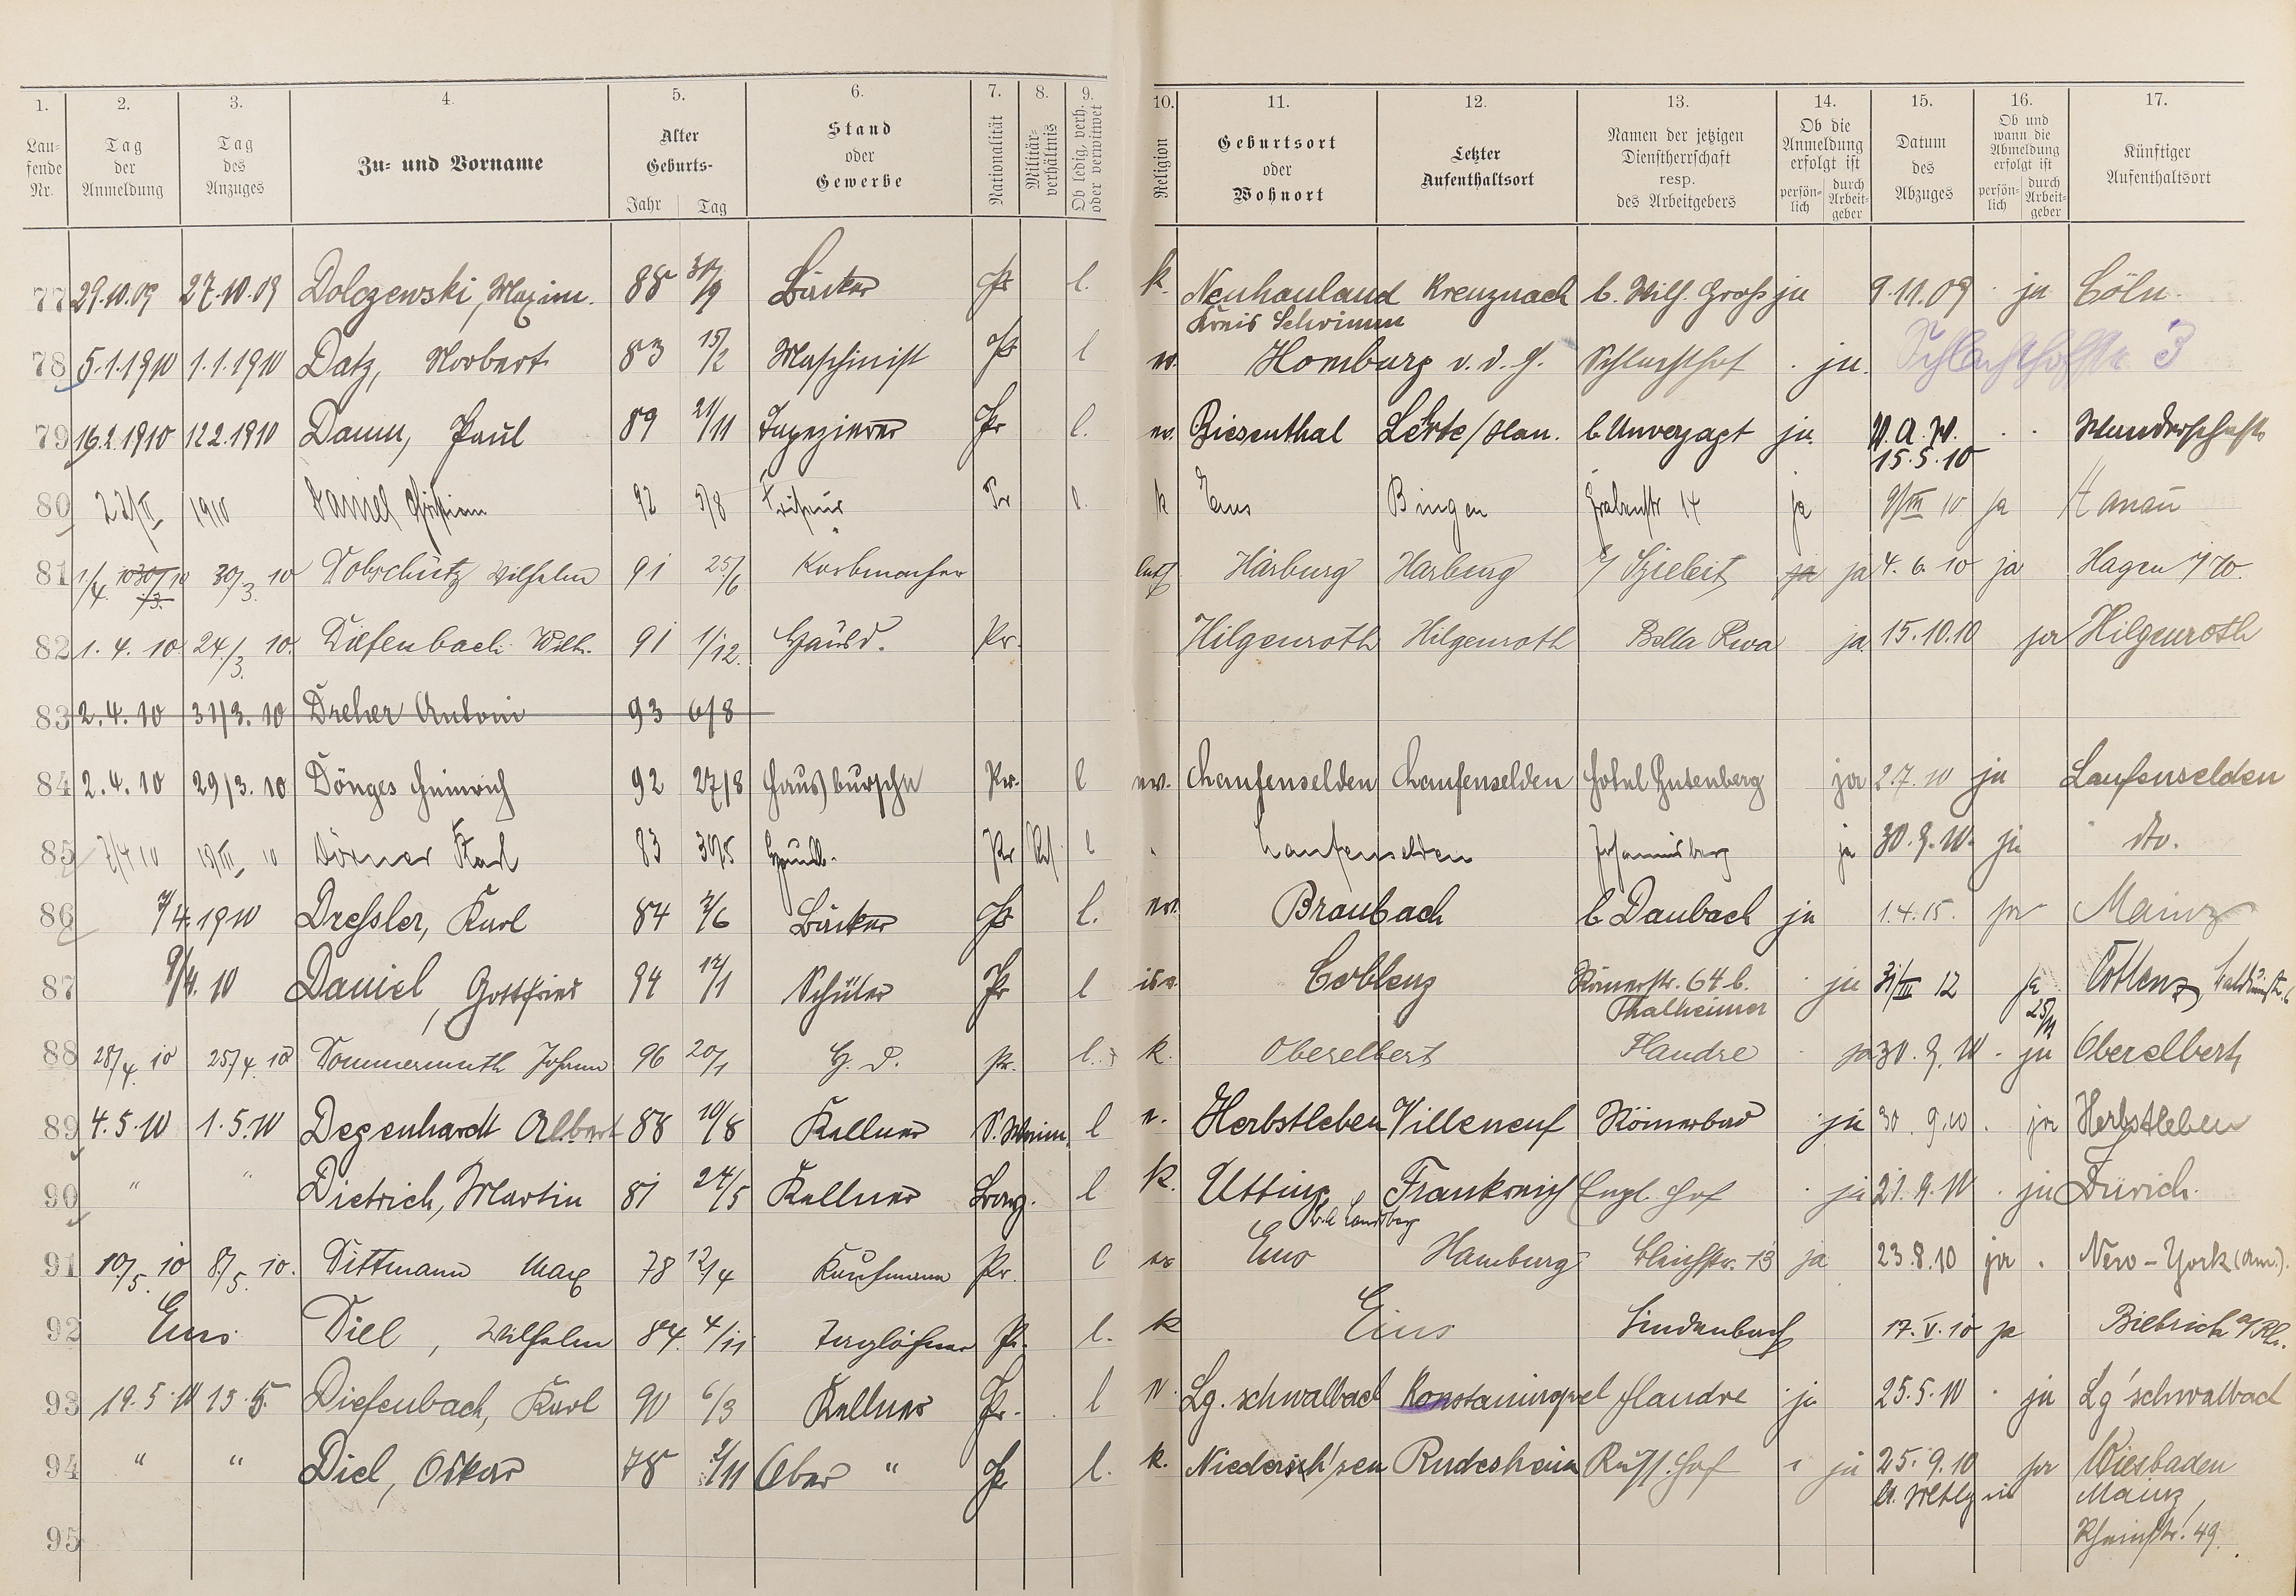 1. 2. 3. 4. 5. 6. 7. 8. 9. 10. 11. 12. 13. 14. 15. 16. 17.
Lau-
fende
Nr.
Tag
der
Anmeldung
Tag
des
Anzuges
Zu- und Vorname
Alter
Geburts-
Jahr Tag
Stand
oder
Gewerbe
Nationalität
Militär-
verhältnis
Ob ledig, verh.
oder verwitwet
Religion
Geburtsort
oder
Wohnort
Letzter
Aufenthaltsort
Namen der jetzigen
Dienstherrschaft
resp.
des Arbeitgebers
Ob die
Anmeldung
erfolgt ist
persön-
lich
durch
Arbeit-
geber
Datum
des
Abzuges
Ob und
wann die
Abmeldung
erfolgt ist
persön-
lich
durch
Arbeit-
geber
Künftiger
Aufenthaltsort
77 29.10.09 27.10.09 Dolczewski, Maxim. 88 30/9 Bäcker Pr l. k. Neuhauland Kreuznach b. Wilh. Groß ja 9.11.09 ja Cöln.
Kreis Schrimm
78 5.1.1910 1.1.1910 Datz, Norbert 83 15/2 Maschinist Pr l ev. Homburg v. d. H. Schlachthof ja. Schlachthofstr. 3
79 16.2.1910 12.2.1910 Damm, Paul 89 21/11 Tapezierer Pr l. ev. Biesenthal Lehrte/Han. b. Unverzagt ja W.a.W. Wanderschaft
15.5.10
80 22/II 1910 Daniel Christian 92 5/8 Friseur Pr l. k Ems Bingen Grabenstr 14 ja 9/III 10 ja Hanau
81 1./4. 10 30/3 10 30/3. 10 Dobschütz Wilhelm 91 25/6 Korbmacher luth Harburg Harburg Szieleit ja ja 4.6.10 ja Hagen i/W.
82 1. 4. 10 24./3. 10. Diefenbach Wilh. 91 1/12. Hausd. Pr. Hilgenroth Hilgenroth Bella Riva ja. 15.10.10 ja Hilgenroth
83 2. 4. 10 31/3. 10 Dreher Anton 93 6/8
84 2. 4. 10 29/3. 10 Dönges Heinrich 92 27/8 Hausbursche Pr. l ev. Laufenselden Laufenselden Hotel Gutenberg ja 2.7.10 ja Laufenselden
85 7/4 10 13/III 10 Dörner Karl 83 30/5 Hausb. Pr l Laufenselden Johannisberg ja 30.9.10. ja dto.
86 7/4. 1910 Dreßler, Karl 84 7/6 Bäcker Pr l. ev. Braubach b. Daubach ja 1.4.15. ja Mainz
87 9/4. 10 Daniel, Gottfried 94 12/1 Schüler Pr l isr. Coblenz Römerstr. 64 b. ja 31/III 12 ja Coblenz,
Thalheimer
88 28/4. 10 25/4. 10 Dommermuth Johann 96 20/1 H. D. pr. l. k. Oberelbert Flandre ja 30.9.10 ja Oberelbert
89 4.5.10 1.5.10 Degenhardt Albert 88 10/8 Kellner l e. Herbstleben Villeneuf Römerbad ja 30.9.10 ja Herbstleben
90 " " Dietrich, Martin 81 24/5 Kellner Bay. l k. Utting Frankreich Engl. Hof ja 21.9.10 ja Zürich.
b. Landsberg
91 10/5. 10 8/5. 10. Dittmann Max 78 12/4 Kaufmann Pr. l Ems Hamburg Bleichstr. 13 ja 23.8.10 ja New-York (Am.).
92 Ems Diel, Wilhelm 84. 4/11 Taglöhner Pr. l. k Ems Lindenbach 17.V.10 ja Biebrich a/Rh.
93 19.5.10 13.5. Diefenbach, Karl 90 6/3 Kellner Pr. l Lg. schwalbach Flandre ja 25.5.10 ja Lg'schwalbach
94 " " Diel, Oskar 78 Ober " Pr l. k. Rudesheim Russ. Hof ja 25.9.10 ja Wiesbaden
Mainz,
Rheinstr. 49.
95